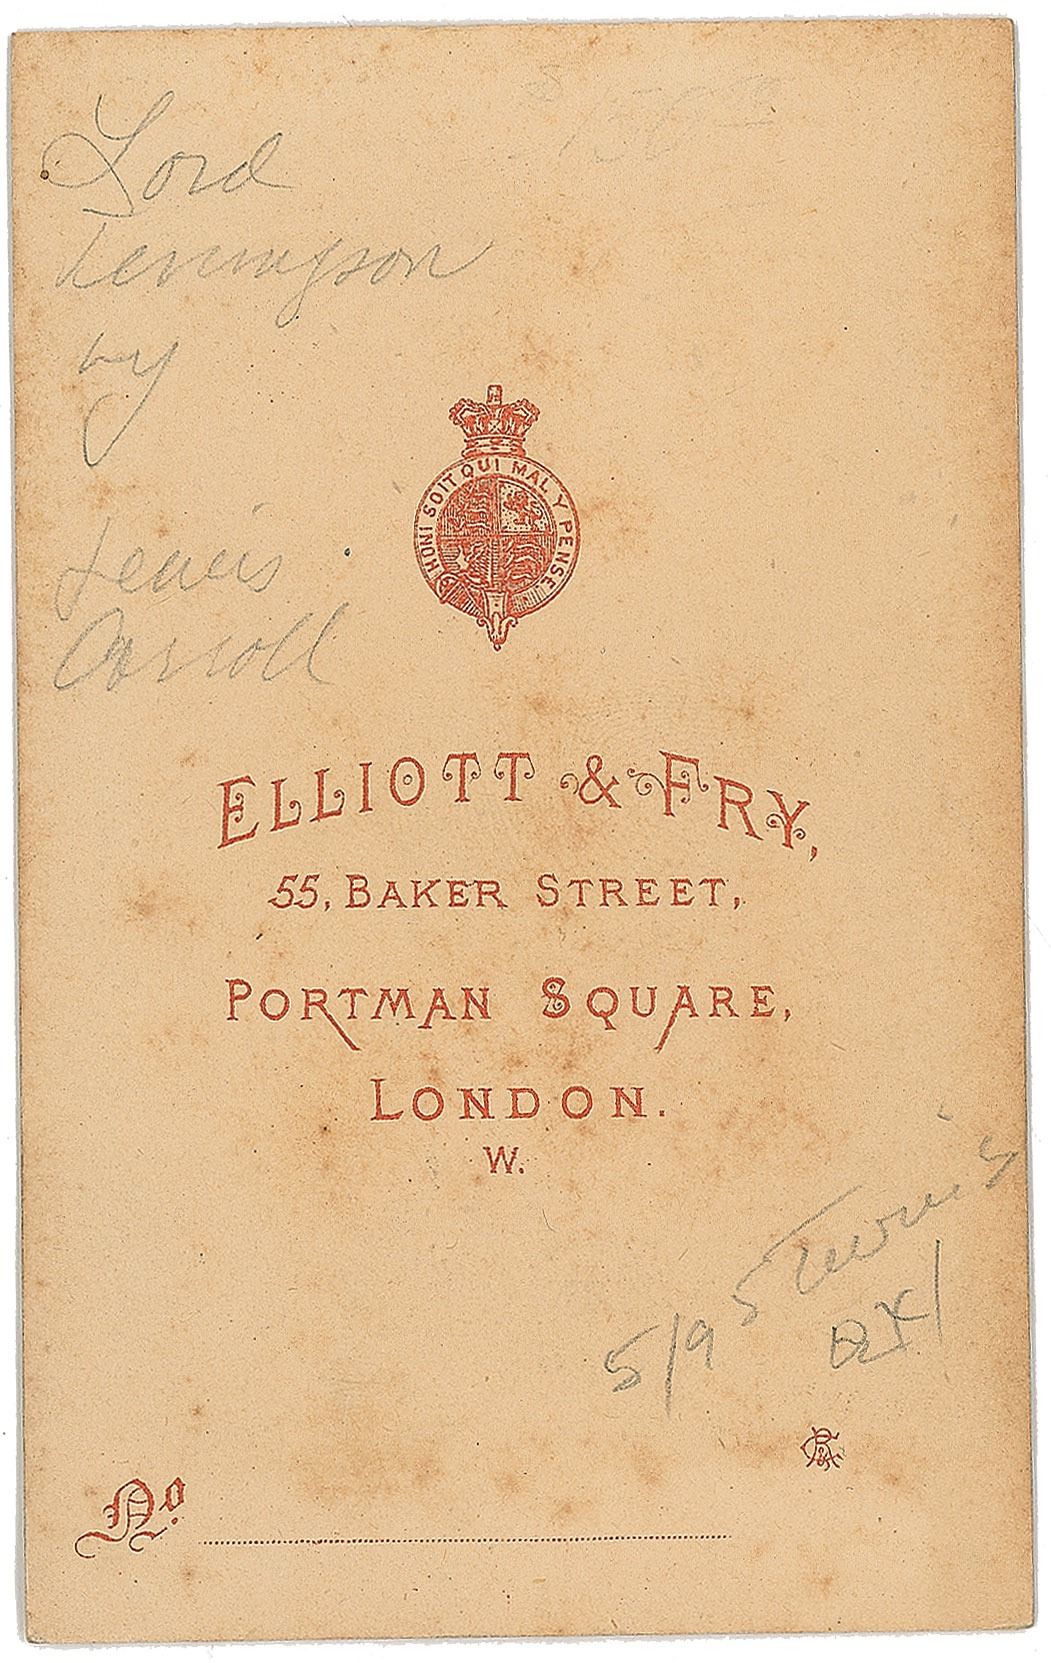 Lord
Tennyson
by
Lewis
Carroll
HONI SOIT QUI MAL Y PENSE.
ELLIOTT & FRY,
55, BAKER STREET,
PORTMAN SQUARE,
LONDON.
W.
5/9
No.